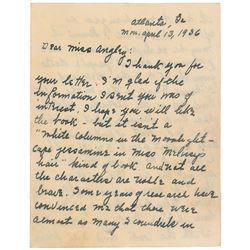 Atlanta, Ga
Mon. April 13, 1936
Dear Miss Angley:
I thank you for
your letter. I'm glad if the
information I sent you was of
interest. I hope you will like
the book - but it isn't a
"White columns in the moonlight-
cape jessamine in Miss Melissy's
hair" kind of book and not all
the characters are noble and
brave. Some years of research have
convinced me that there were
almost as many scoundrels in